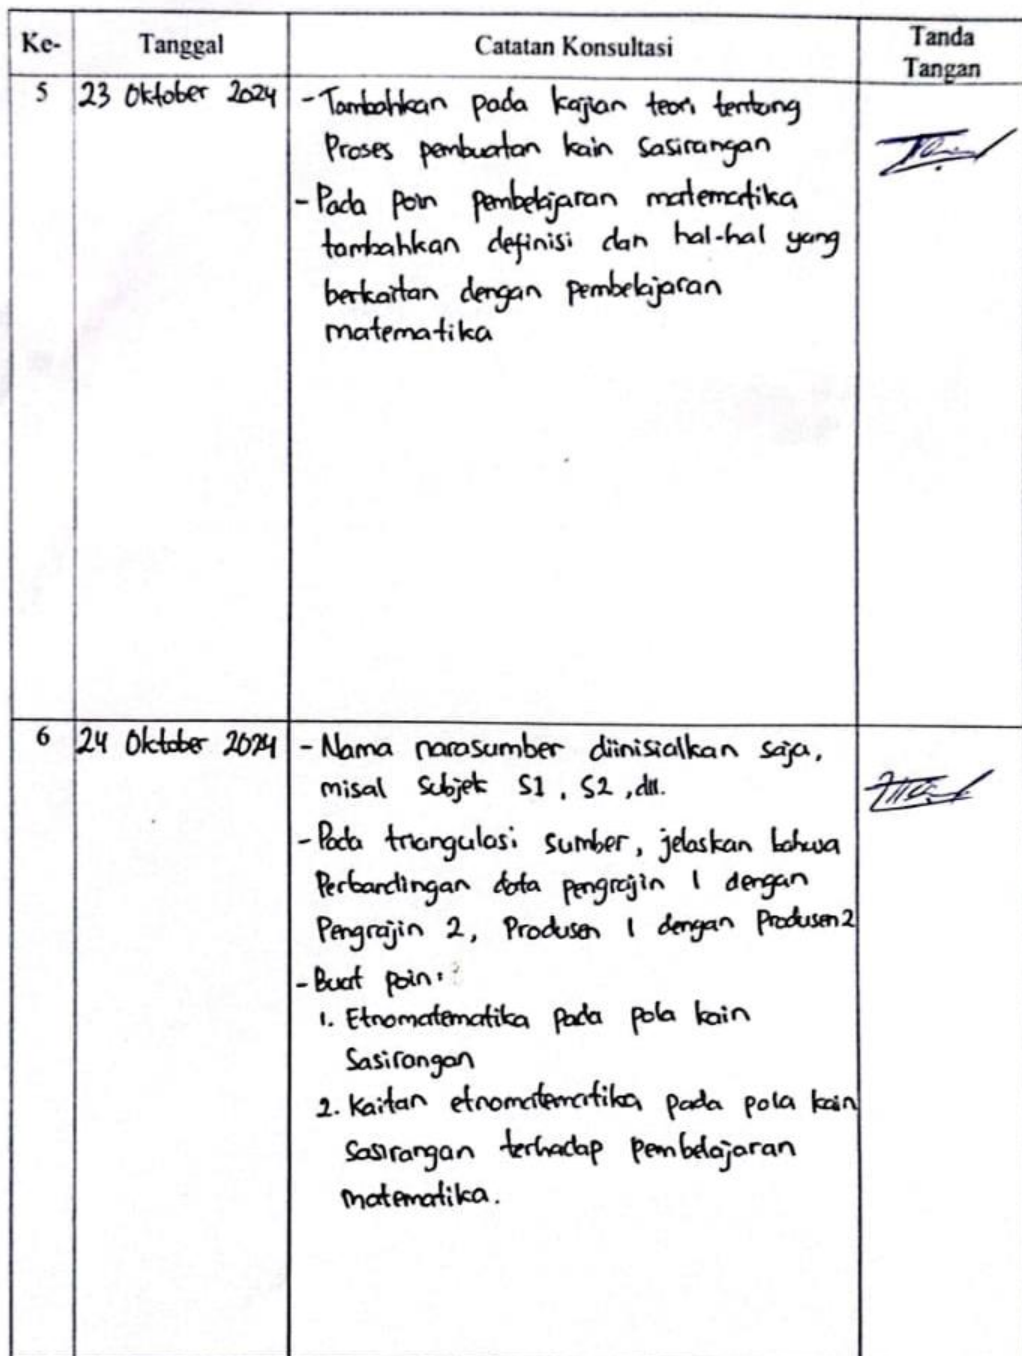 Ke- Tanggal Catatan Konsultasi Tanda Tangan
5 23 Oktober 2024 - Tambahkan pada kajian teori tentang
Proses pembuatan kain Sasirangan
- Pada poin pembelajaran matematika
tambahkan definisi dan hal-hal yang
berkaitan dengan pembelajaran
matematika
6 24 Oktober 2024 - Nama narasumber diinisialkan saja,
misal Subjek S1, S2, dll.
- Pada triangulasi sumber, jelaskan bahwa
Perbandingan data pengrajin 1 dengan
Pengrajin 2, Produsen 1 dengan Produsen 2
- Buat poin:
1. Etnomatematika pada pola kain
Sasirangan
2. Kaitan etnomatematika pada pola kain
Sasirangan terhadap pembelajaran
matematika.